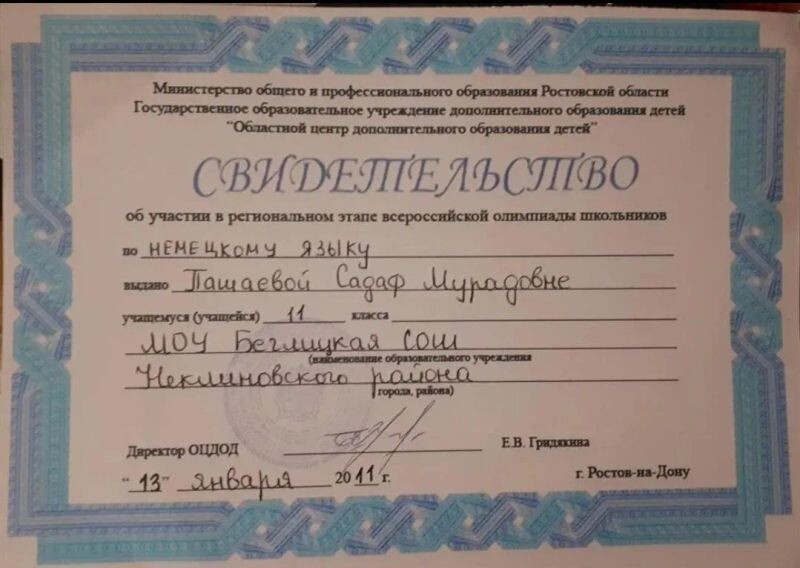 Министерство общего и профессионального образования Ростовской области
Государственное образовательное учреждение дополнительного образования детей
"Областной центр дополнительного образования детей"
СВИДЕТЕЛЬСТВО
об участии в региональном этапе всероссийской олимпиады школьников
по НЕМЕЦКОМУ ЯЗЫКУ
выдано Пашаевой Садаф Мурадовне
учащемуся (учащейся) 11 класса
МОУ Беглицкая СОШ
(наименование образовательного учреждения
Неклиновского района
города, района)
Директор ОЦДОД Е.В. Гридякина
"13" января 2011 г. г. Ростов-на-Дону